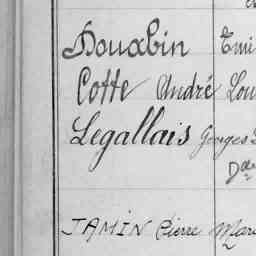 Douabin Emi
Cotte André Lou
Legallais Georges
JAMIN Pierre Mar